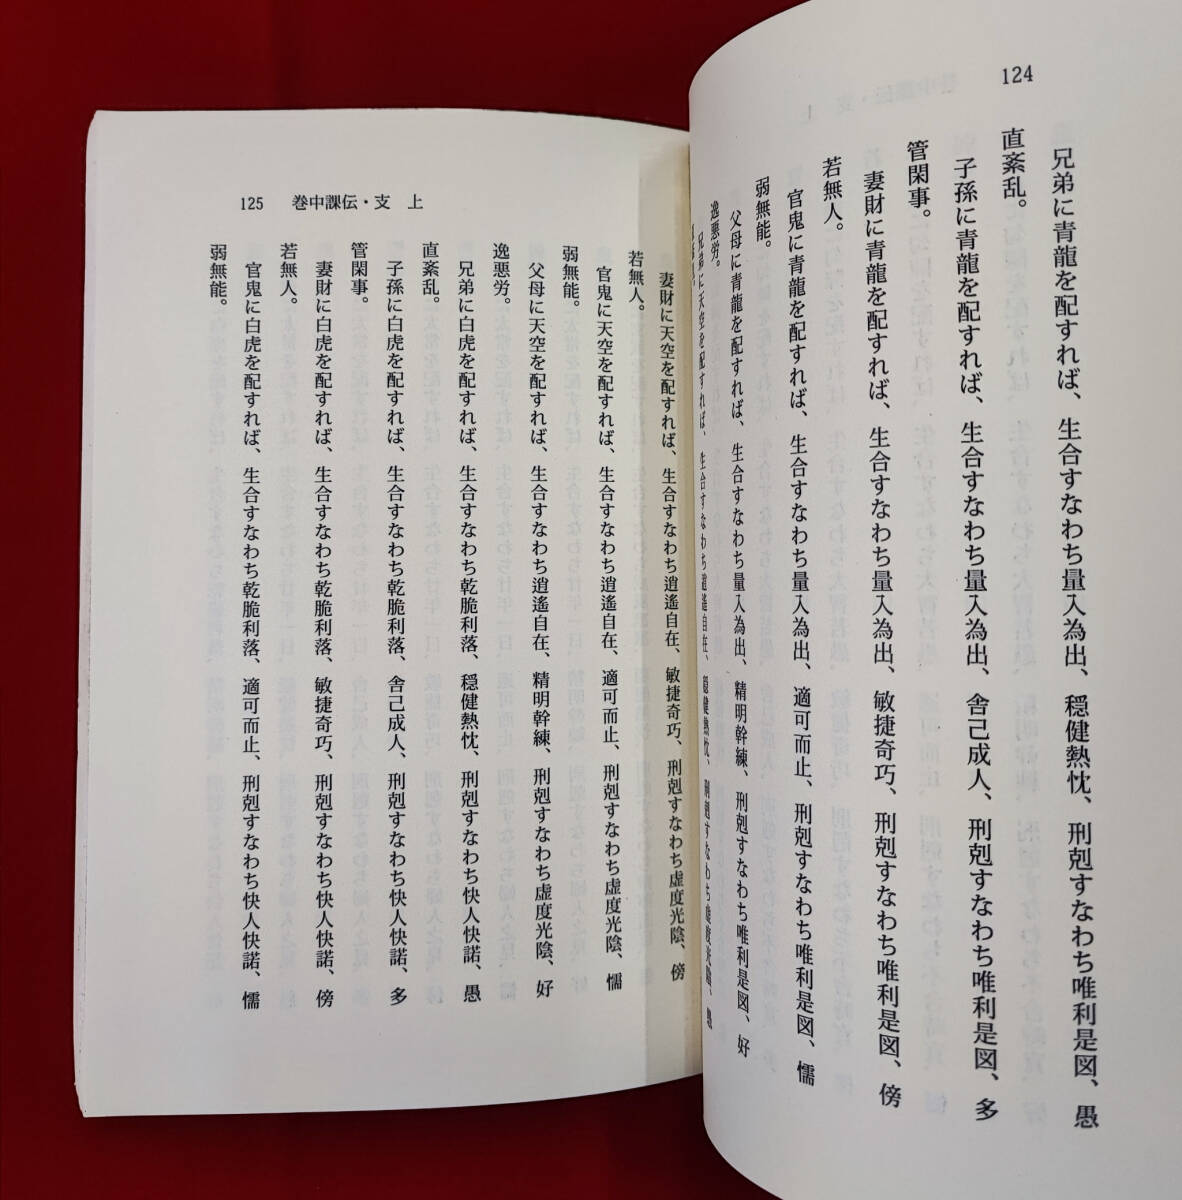 124
兄弟に青龍を配すれば、生合すなわち量入為出、穏健熱忱、刑剋すなわち唯利是図、愚
直紊乱。
子孫に青龍を配すれば、生合すなわち量入為出、舎己成人、刑剋すなわち唯利是図、多
管閑事。
妻財に青龍を配すれば、生合すなわち量入為出、敏捷奇巧、刑剋すなわち唯利是図、傍
若無人。
官鬼に青龍を配すれば、生合すなわち量入為出、適可而止、刑剋すなわち唯利是図、懦
弱無能。
父母に青龍を配すれば、生合すなわち量入為出、精明幹練、刑剋すなわち唯利是図、好
逸悪労。
兄弟に天空を配すれば、生合すなわち逍遙自在、穏健熱忱、刑剋すなわち虚度光陰、愚
125 巻中課伝・支 上
妻財に天空を配すれば、生合すなわち逍遙自在、敏捷奇巧、刑剋すなわち虚度光陰、傍
若無人。
官鬼に天空を配すれば、生合すなわち逍遙自在、適可而止、刑剋すなわち虚度光陰、懦
弱無能。
父母に天空を配すれば、生合すなわち逍遙自在、精明幹練、刑剋すなわち虚度光陰、好
逸悪労。
兄弟に白虎を配すれば、生合すなわち乾脆利落、穏健熱忱、刑剋すなわち快人快諾、愚
直紊乱。
子孫に白虎を配すれば、生合すなわち乾脆利落、舎己成人、刑剋すなわち快人快諾、多
管閑事。
妻財に白虎を配すれば、生合すなわち乾脆利落、敏捷奇巧、刑剋すなわち快人快諾、傍
若無人。
官鬼に白虎を配すれば、生合すなわち乾脆利落、適可而止、刑剋すなわち快人快諾、懦
弱無能。